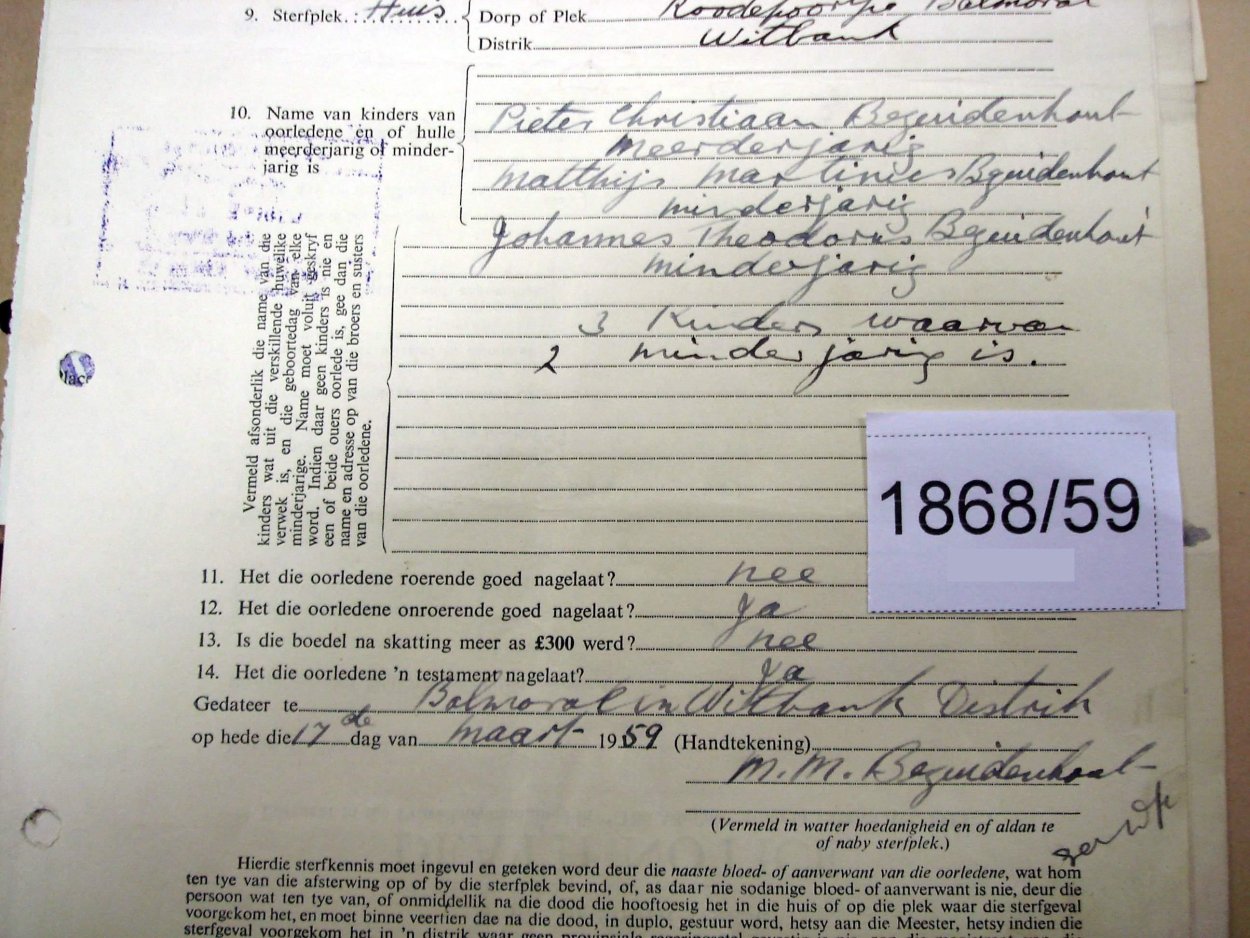 9. Sterfplek Huis
Dorp of Plek Balmoral
Distrik Witbank
10. Name van kinders van
oorledene en of hulle
meerderjarig of minder-
jarig is
Pieter Christiaan Bezuidenhout
Meerderjarig
Matthijs Martinus Bezuidenhout
minderjarig
Johannes Theodorus Bezuidenhout
minderjarig
3 Kinders waarvan
2 minderjarig is.
Vermeld afsonderlik die name van die
kinders wat uit die verskillende huwelike
verwek is, en die geboortedag van elke
minderjarige. Name moet voluit geskryf
word. Indien daar geen kinders is nie en
een of beide ouers oorlede is, gee dan die
name en adresse op van die broers en susters
van die oorledene.
1868/59
11. Het die oorledene roerende goed nagelaat? nee
12. Het die oorledene onroerende goed nagelaat? Ja
13. Is die boedel na skatting meer as £300 werd? nee
14. Het die oorledene 'n testament nagelaat? Ja
Gedateer te Balmoral in Witbank Distrik
op hede die 17de dag van Maart 1959 (Handtekening)
M. M. Bezuidenhout
(Vermeld in watter hoedanigheid en of aldan te
of naby sterfplek.)
Hierdie sterfkennis moet ingevul en geteken word deur die naaste bloed- of aanverwant van die oorledene, wat hom
ten tye van die afsterwing op of by die sterfplek bevind, of, as daar nie sodanige bloed- of aanverwant is nie, deur die
persoon wat ten tye van, of onmiddellik na die dood die hooftoesig het in die huis of op die plek waar die sterfgeval
voorgekom het, en moet binne veertien dae na die dood, in duplo, gestuur word, hetsy aan die Meester, hetsy indien die
sterfgeval voorgekom het in 'n distrik waar geen